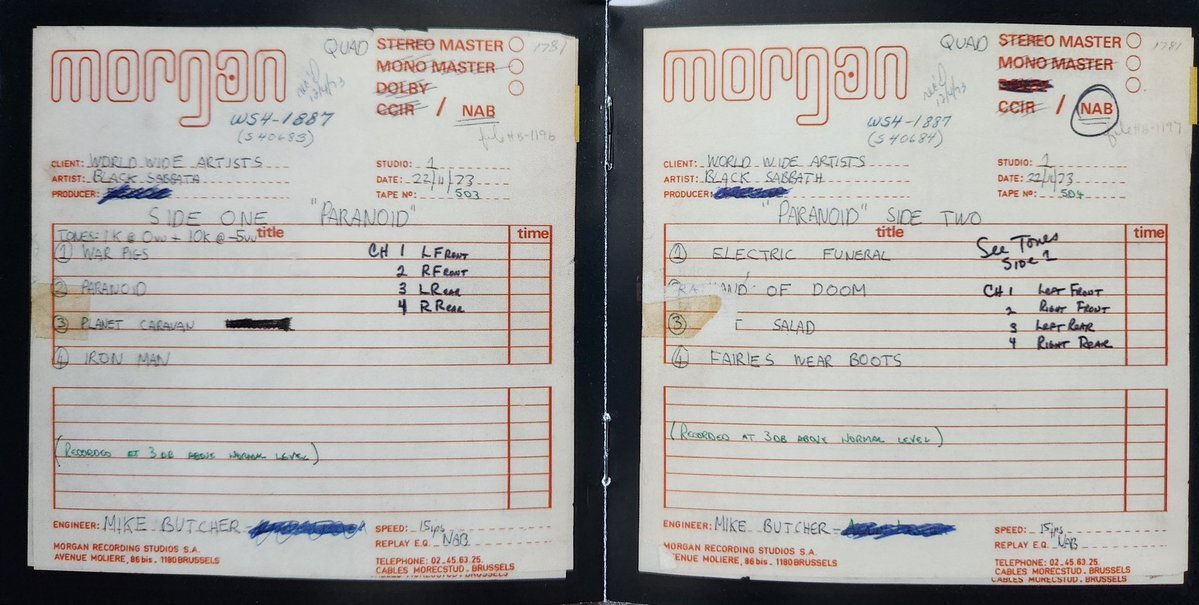 morgan
QUAD STEREO MASTER
MONO MASTER
DOLBY
CCIR / NAB
1781
rec'd
12/4/73
WS4-1887
(S 40683)
file #B-1196
CLIENT: WORLD WIDE ARTISTS
ARTIST: BLACK SABBATH
PRODUCER:
STUDIO: 1
DATE: 22/11/73
TAPE No: 503
SIDE ONE "PARANOID"
TONES: 1K @ 0vu + 10K @ -5vu
title time
1 WAR PIGS
2 PARANOID
3 PLANET CARAVAN
4 IRON MAN
CH 1 L FRONT
2 R FRONT
3 L REAR
4 R REAR
(RECORDED AT 3 DB ABOVE NORMAL LEVEL)
ENGINEER: MIKE BUTCHER
SPEED: 15 ips
REPLAY E.Q. NAB
MORGAN RECORDING STUDIOS S.A.
AVENUE MOLIERE, 86 bis. 1180 BRUSSELS
TELEPHONE: 02_45.63.25.
CABLES MORECSTUD. BRUSSELS
morgan
QUAD STEREO MASTER
MONO MASTER
CCIR / NAB
1781
rec'd
12/4/73
WS4-1887
(S 40684)
file #B-1197
CLIENT: WORLD WIDE ARTISTS
ARTIST: BLACK SABBATH
PRODUCER:
STUDIO: 1
DATE: 22/11/73
TAPE No: 504
"PARANOID" SIDE TWO
title time
1 ELECTRIC FUNERAL
HAND OF DOOM
3 T SALAD
4 FAIRIES WEAR BOOTS
See Tones
Side 1
CH 1 LEFT FRONT
2 RIGHT FRONT
3 LEFT REAR
4 RIGHT REAR
(RECORDED AT 3 DB ABOVE NORMAL LEVEL)
ENGINEER: MIKE BUTCHER
SPEED: 15 ips
REPLAY E.Q. NAB
MORGAN RECORDING STUDIOS S.A.
AVENUE MOLIERE, 86 bis. 1180 BRUSSELS
TELEPHONE: 02_45.63.25.
CABLES MORECSTUD. BRUSSELS
CABLES MORECSTUD. BRUSSELS